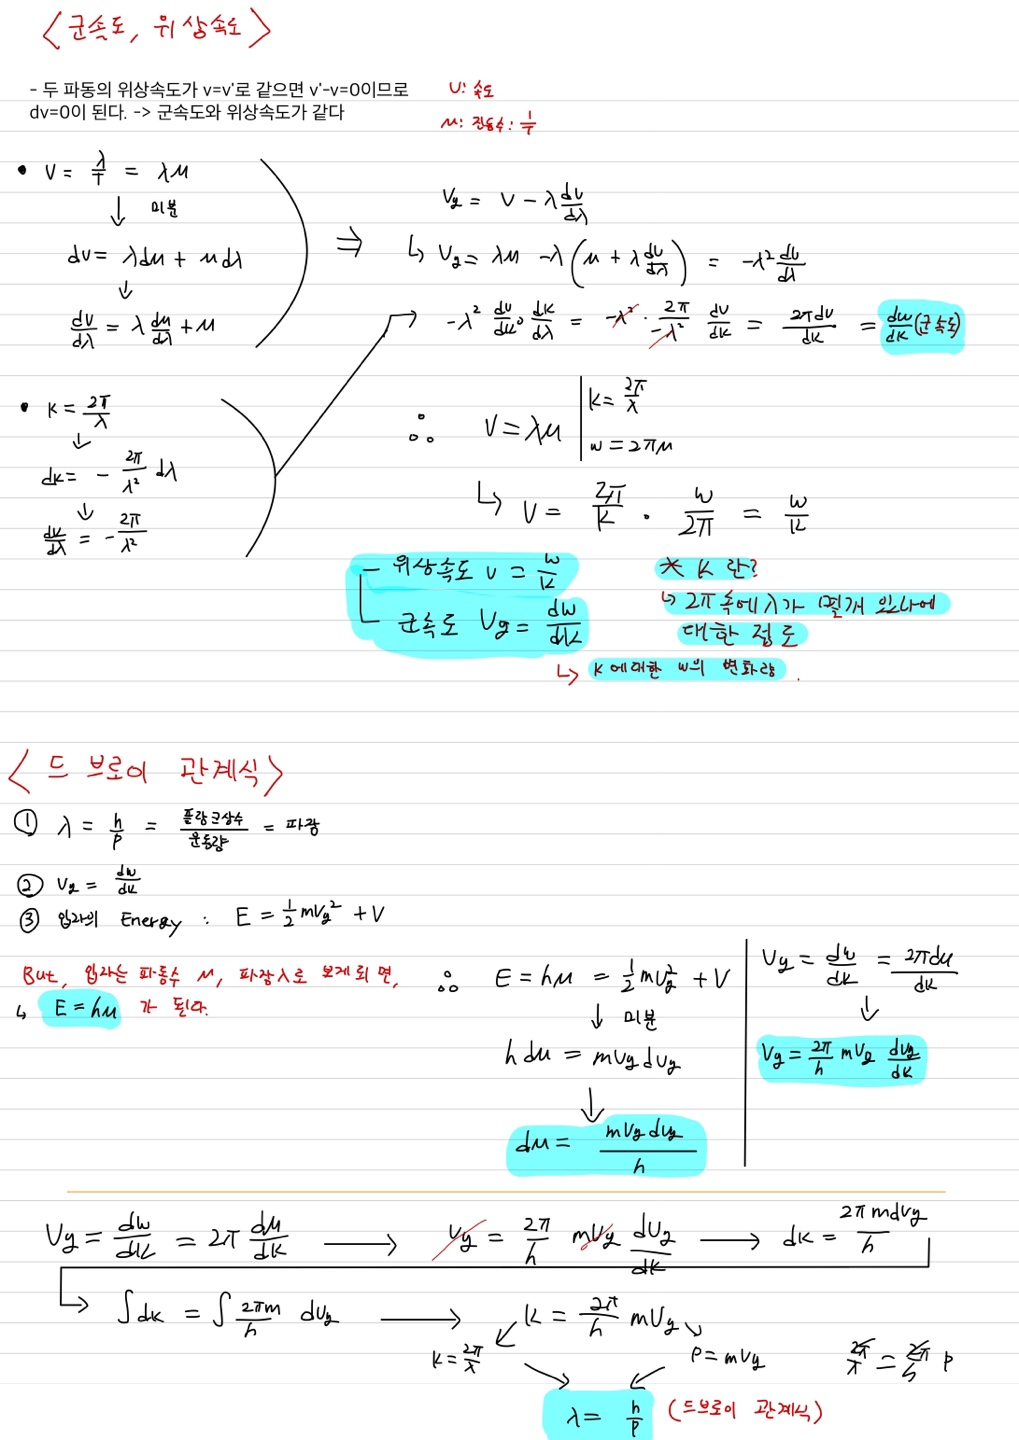 <군속도, 위상속도>
- 두 파동의 위상속도가 v=v'로 같으면 v'-v=0이므로
dv=0이 된다. -> 군속도와 위상속도가 같다
υ: 속도
μ: 진동수: 1/T
• V = λ/T = λμ
↓ 미분
dv = λdμ + μdλ
↓
dv/dλ = λ dμ/dλ + μ
⇒
Vg = V - λ dv/dλ
↳ Vg = λμ - λ(μ + λ dυ/dλ) = -λ² dυ/dλ
-λ² dυ/dk · dk/dλ = -λ² · 2π/-λ² dυ/dk = 2πdυ/dk = dw/dk (군속도)
• k = 2π/λ
↓
dk = - 2π/λ² dλ
↓
dk/dλ = - 2π/λ²
∴ V = λμ | k = 2π/λ
w = 2πμ
↳ V = 2π/k · w/2π = w/k
- 위상속도 υ = w/k
군속도 Vg = dw/dk
* K란?
↳ 2π속에 λ가 몇개 있나에
대한 정도
↳ k에대한 w의 변화량.
<드 브로이 관계식>
① λ = h/p = 플랑크상수/운동량 = 파장
② Vg = dw/dk
③ 입자의 Energy : E = 1/2 mVg² + V
But, 입자는 파동수 μ, 파장λ로 보게되면,
↳ E = hμ 가 된다.
∴ E = hμ = 1/2 mVg² + V
↓ 미분
h dμ = mVg dVg
↓
dμ = mVg dVg/h
Vg = dw/dk = 2πdμ/dk
↓
Vg = 2π/h mVg dVg/dk
Vg = dw/dk = 2π dμ/dk → Vg = 2π/h mVg dVg/dk → dk = 2πmdVg/h
→ ∫dk = ∫ 2πm/h dVg → k = 2π/h mVg
k = 2π/λ P = mVg 2π/λ = 2π/h P
λ = h/p (드브로이 관계식)